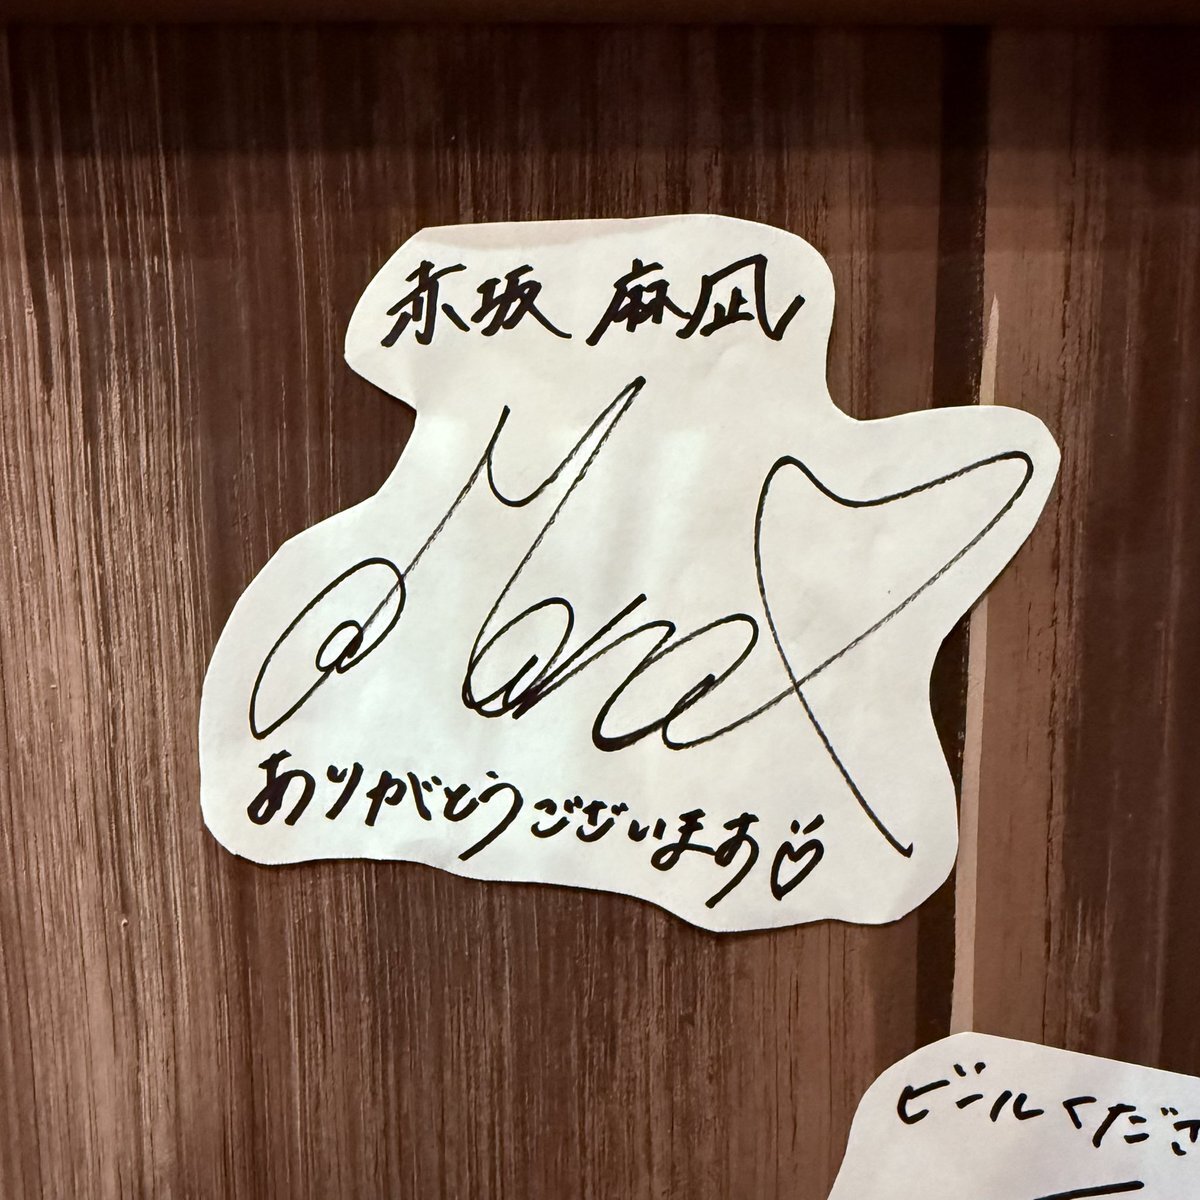 赤坂 麻凪
ありがとうございます♡
ビールくださ